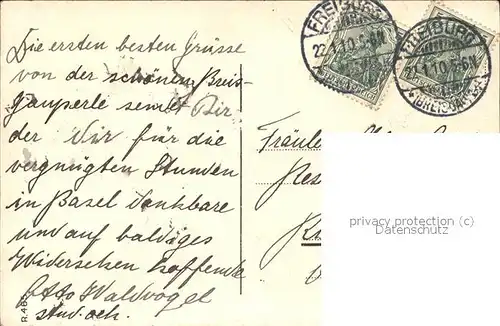 Die ersten besten Grüsse
von der schönen Breis-
gauperle sendet Dir
der Dir für die
vergnügten Stunden
in Basel dankbare
und auf baldiges
Widersehen hoffende
Otto Waldvogel
stud. oeh.
R. 46
FREIBURG
22.1.10.5-6N
FREIBURG
22.1.10.5-6N
(BREISGAU)
Fräulei
privacy protection (c)
Datenschutz